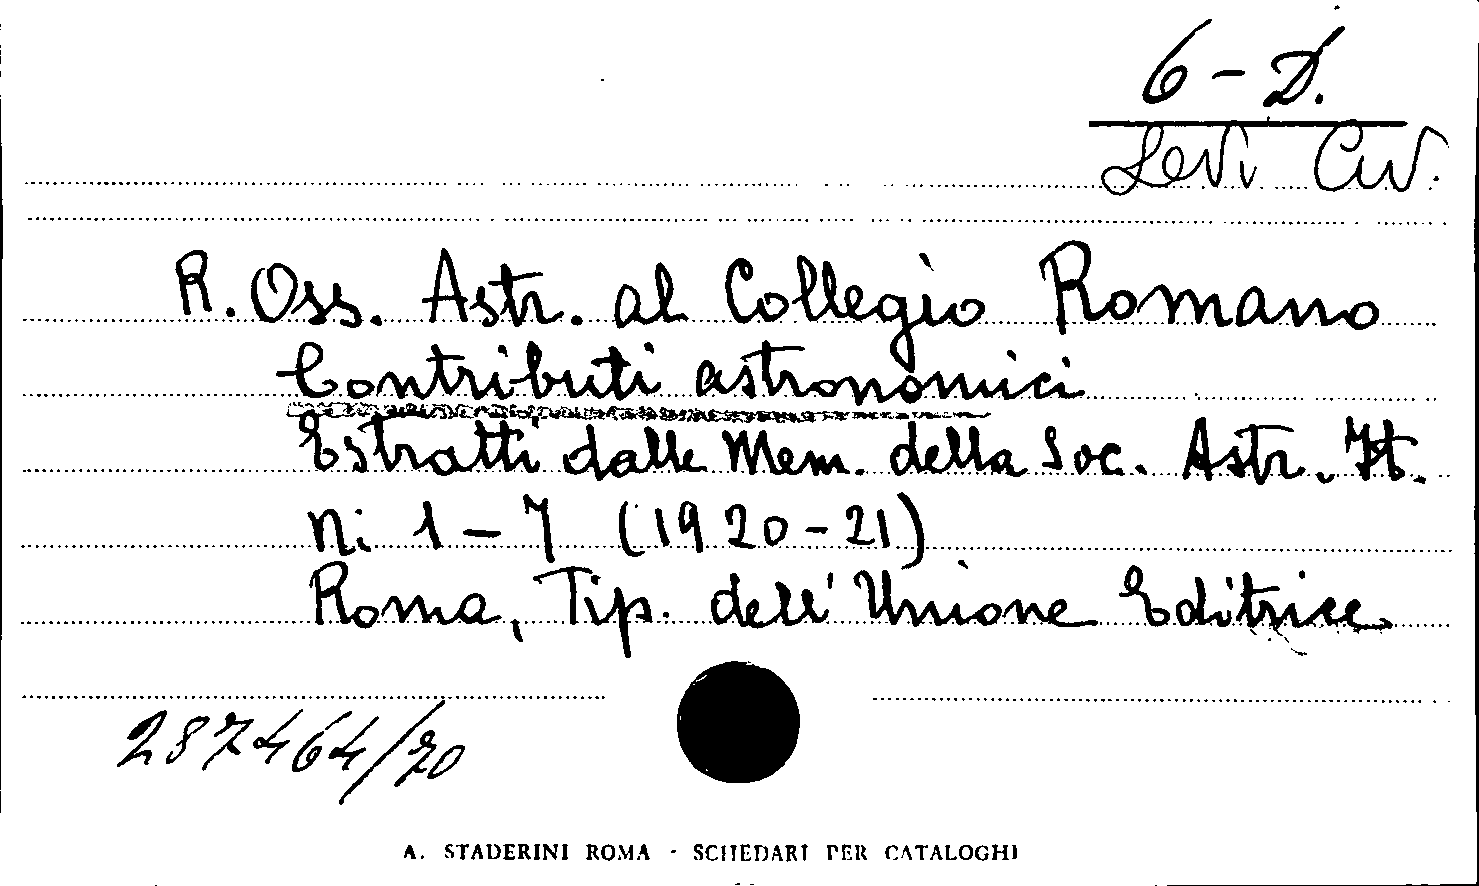 6 - D.
Levi Civ.
R. Oss. Astr. al Collegio Romano
Contributi astronomici
Estratti dalle Mem. della Soc. Astr. It.
Ni 1 - 7 (1920-21)
Roma, Tip. dell'Unione Editrice
287464/70
A. STADERINI ROMA - SCHEDARI PER CATALOGHI